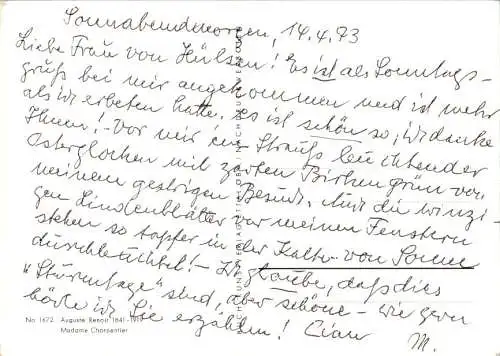 Sonnabendmorgen, 14.4.73
Liebe Frau von Hülsen! Es ist als Sonntags-
gruß bei mir angekommen und ist mehr
als ich erbeten hatte. Es ist schön so, ich danke
Ihnen! – Vor mir ein Strauß leuchtender
Osterglocken mit zartem Birkengrün von
meinem gestrigen Besuch. Und die winzi
gen Lindenblätter vor meinen Fenstern
stehen so tapfer in der Kälte – von Sonne
durchleuchtet! – Ich glaube, daß dies
"Sturmtage" sind, aber schöne – wie gern
hörte ich Sie erzählen! Ciao
M.
No. 1672 Auguste Renoir 1841-1919
Madame Charpentier